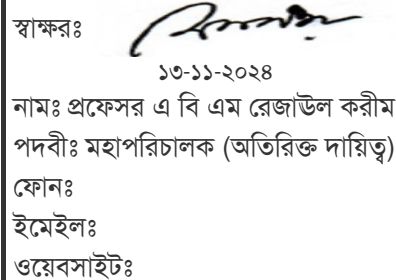 স্বাক্ষরঃ
১৩-১১-২০২৪
নামঃ প্রফেসর এ বি এম রেজাউল করীম
পদবীঃ মহাপরিচালক (অতিরিক্ত দায়িত্ব)
ফোনঃ
ইমেইলঃ
ওয়েবসাইটঃ